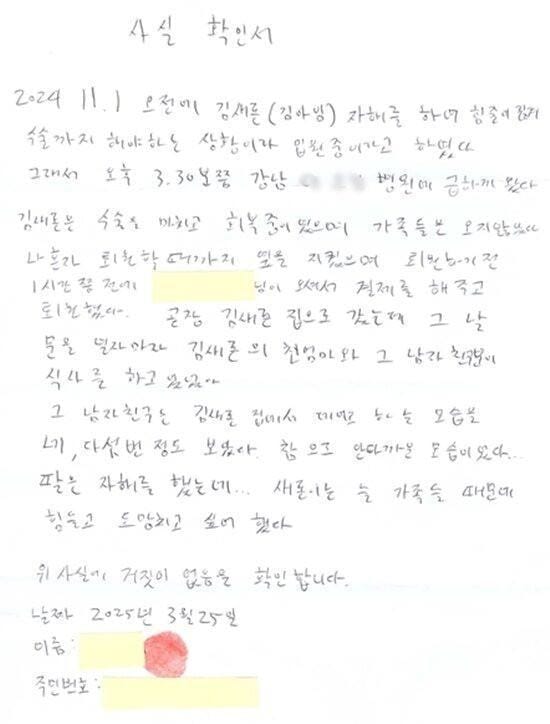 사실 확인서
2024 11.1 오전에 김새론(김아임) 자해를 하여 힘줄이
수술까지 해야하는 상황이라 입원중이라고 하였다
그래서 오후 3.30분쯤 강남 병원에 급하게 갔다
김새론은 수술을 마치고 회복중이었으며 가족들은 오지않았다
나혼자 퇴원할때까지 옆을 지켰으며 퇴원하기전
1시간쯤 전에 님이 오셔서 결제를 해주고
퇴원했다. 곧장 김새론 집으로 갔는데 그 날
문을 열자마자 김새론의 친엄마와 그 남자친구분이
식사를 하고 있었다
그 남자친구는 김새론 집에서 하는 모습을
네, 다섯번 정도 보았다. 참으로 안타까운 모습이었다...
딸은 자해를 했는데... 새론이는 늘 가족들 때문에
힘들고 도망치고 싶어 했다
위 사실에 거짓이 없음을 확인합니다.
날짜 2025년 3월 25일
이름:
주민번호: